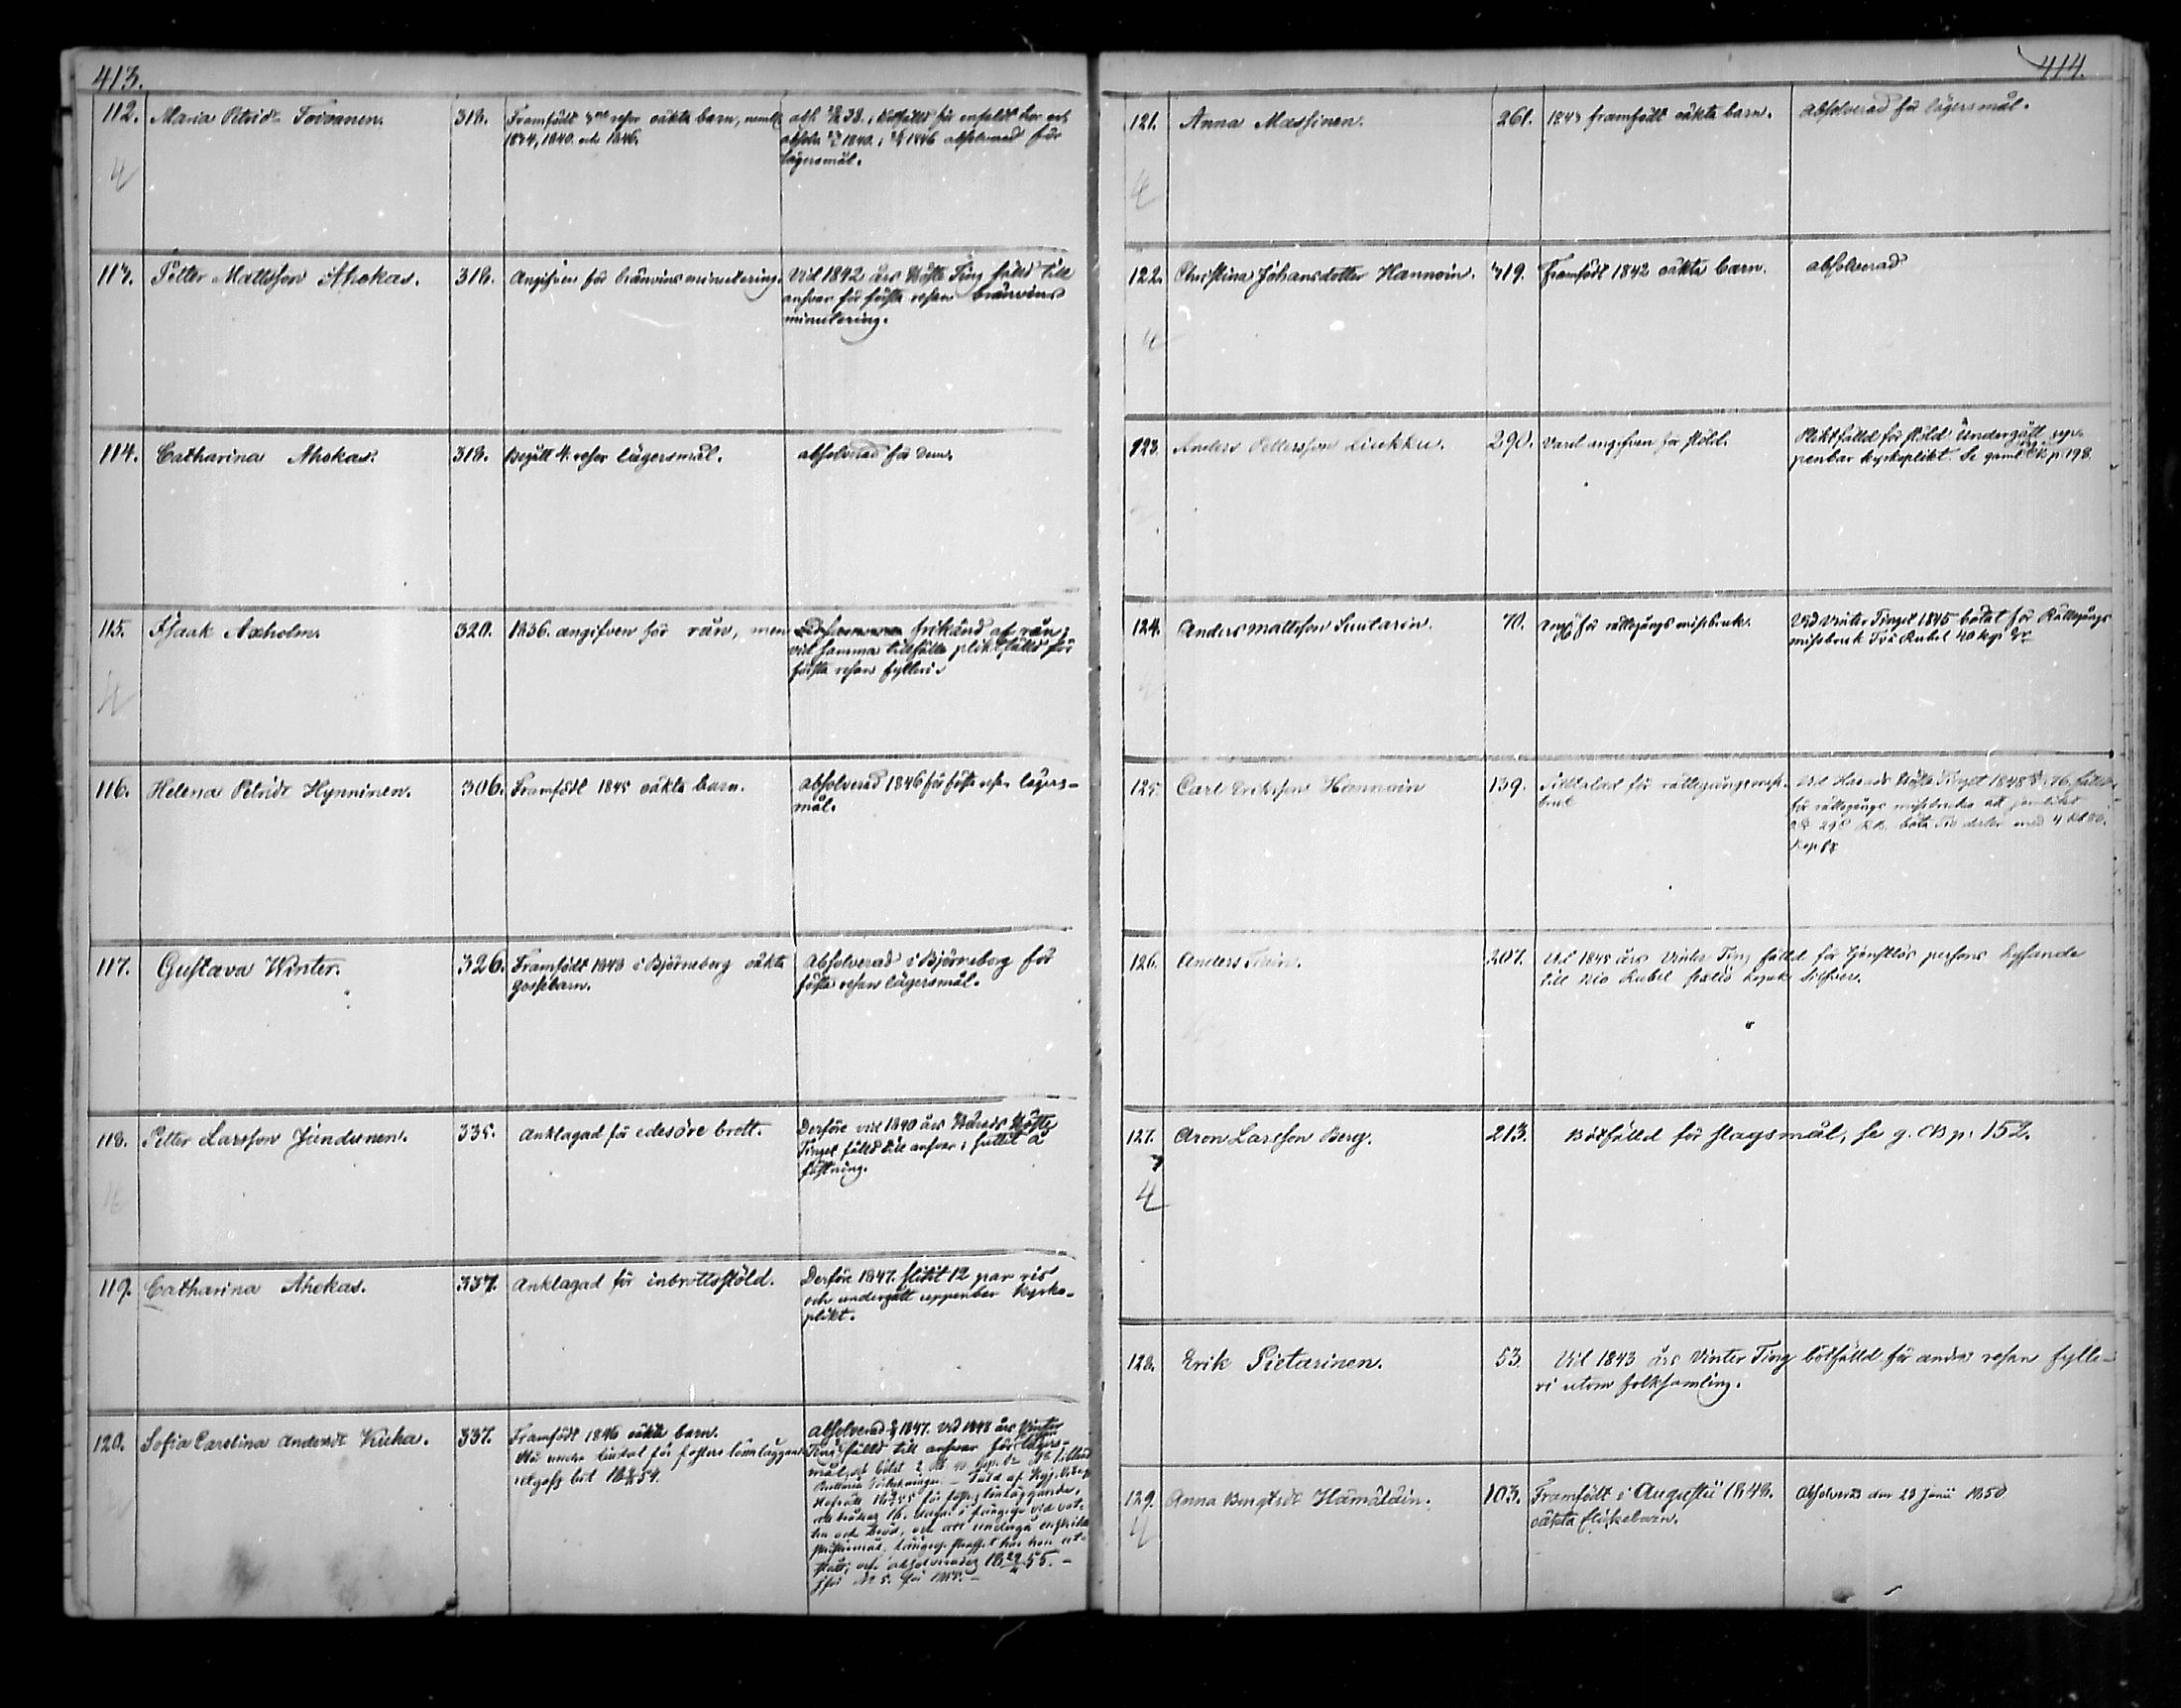 413.
112. Maria Petrid: Toivanen. 318. Framfödt 3ne resor oäkta barn, neml.
1834, 1840. och 1846.
38. bötfälld för enfaldt hor och
absolv. 1840. 1846 absolverad för
lägersmål.
113. Petter Mattsson Ahokas. 318. Angifven för bränvins minutering.
Vid 1842 års Höste Ting fälld till
ansvar för första resan bränvins
minutering.
114. Catharina Ahokas. 318. Begått 4. resor lägersmål. absolverad för dem.
115. Isaak Axholm. 320. 1836. angifven för rån, men frikänd af rån;
vid samma tillfälle pliktfälld för
första resan fylleri.
116. Helena Petridr Hynninen. 306. Framfödt 1845 oäkta barn.
Absolverad 1846 för första resan lägers-
mål.
117. Gustava Winter. 326. Framfödt 1843 i Björneborg oäkta
gossebarn.
Absolverad i Björneborg för
första resan lägersmål.
118. Petter Larsson Jundunen. 335. Anklagad för edsöre brott.
Derföre vid 1840 års Härads Höste
Tinget fälld till ansvar; suttit å
fästning.
119. Catharina Ahokas. 337. Anklagad för inbrottsstöld.
Derföre 1847. slitit 12 par ris
och undergått uppenbar kyrko-
plikt.
120. Sofia Carolina Andersdr Kuha. 337. Framfödt 1846 oäkta barn.
Nu under tilltal för fosters lönnläggande
Absolverad 1847. Vid 1848 års Vinter
Ting fälld till ansvar för lägers-
mål,
Hofrätt 1855 för fosters lönläggande,
i fängelse vid vat-
ten och bröd, och att undergå enskild
skriftermål. har hon ut-
stått; och absolverades 18 29/4 55. -
414.
121. Anna Massinen. 261. 1843 framfödt oäkta barn. absolverad för lägersmål.
122. Christina Johansdotter Hannoin. 319. Framfödt 1842 oäkta barn. absolverad
123. Anders Pettersson Liukku. 290. Vard angifven för stöld.
Pliktfälld för stöld undergått up-
penbar kyrkoplikt. Se gaml. p. 198.
124. Anders Mattsson Suutarin. 70. Ang. för rättegångs missbruk.
Vid Vinter Tinget 1845 bötat för Rättegångs
missbruk Två Rubel 40 kop Sr
125. Carl Eriksson Hannoin 139. Tilltalad för rättegångs miss-
bruk
Vid Härads Höste Tinget 1848 fälld
för rättegångs missbruk att
126. Anders 207. Vid 1845 års Vinter Ting fälld för tjenstlös persons hysande
till Nio Rubel sextio kopek Silfver.
127. Aron Larsson Berg. 213. Bötfälld för slagsmål, se g. CB p: 152.
128. Erik Pietarinen. 53. Vid 1843 års Vinter Ting bötfälld för andra resan fylle-
ri utom folksamling.
129. Anna Bengtsdr Hämäläin. 103. Framfödt i Augusti 1848.
oäkta flickebarn.
Absolverad den 23 Junii 1850